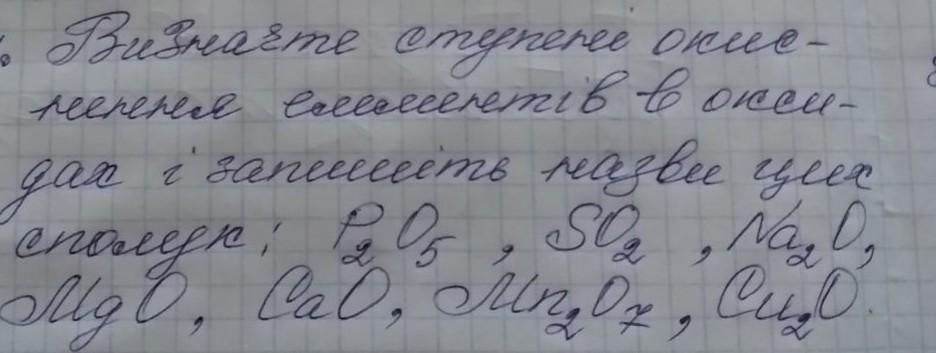 Визначте ступені окис-
нення елементів в окси-
дах і запишіть назви цих
сполук: P₂O₅, SO₂, Na₂O,
MgO, CaO, Mn₂O₇, Cu₂O.